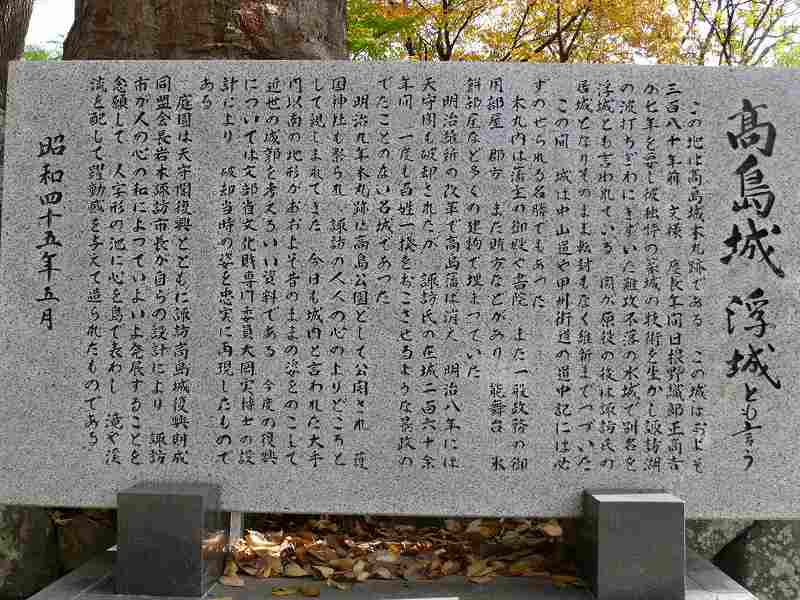 高島城 浮城とも言う
この地は高島城本丸跡である この城はおよそ
三百八十年前 文禄 慶長年間日根野織部正高吉
が七年を要し彼独特の築城の技術を生かし諏訪湖
の波打ちぎわにきずいた難攻不落の水城で別名を
浮城とも言われている 関が原役の後は諏訪氏の
居城となりそのまま転封もなく維新までつづいた
この間 城は中山道や甲州街道の道中記には必
ずのせられる名勝でもあった
本丸内は藩主の御殿や書院 また一般政務の御
用部屋 郡方 また賄方などがあり 能舞台 氷
餅部屋など多くの建物で埋まっていた
明治維新の改革で高島藩は消え 明治八年には
天守閣も破却されたが 諏訪氏の在城二百六十余
年間 一度も百姓一揆をおこさせるような悪政の
でたことのない名城であった
明治九年本丸跡は高島公園として公開され 護
国神社も祭られ 諏訪の人人の心のよりどころと
して親しまれてきた 今は城内と言われた大手
門以南の地形がおおよそ昔のままの姿をのこして
近世の城郭を考えるいい資料である 今度の復興
については文部省文化財専門委員大岡実博士の設
計により 破却当時の姿を忠実に再現したもので
ある
庭園は天守閣復興とともに諏訪高島城復興期成
同盟会長岩本諏訪市長が自らの設計により 諏訪
市が人の心の和によっていよいよ発展することを
念願して 人字形の池に心を島で表わし 滝や渓
流を配して躍動感を与えて造られたものである
昭和四十五年五月